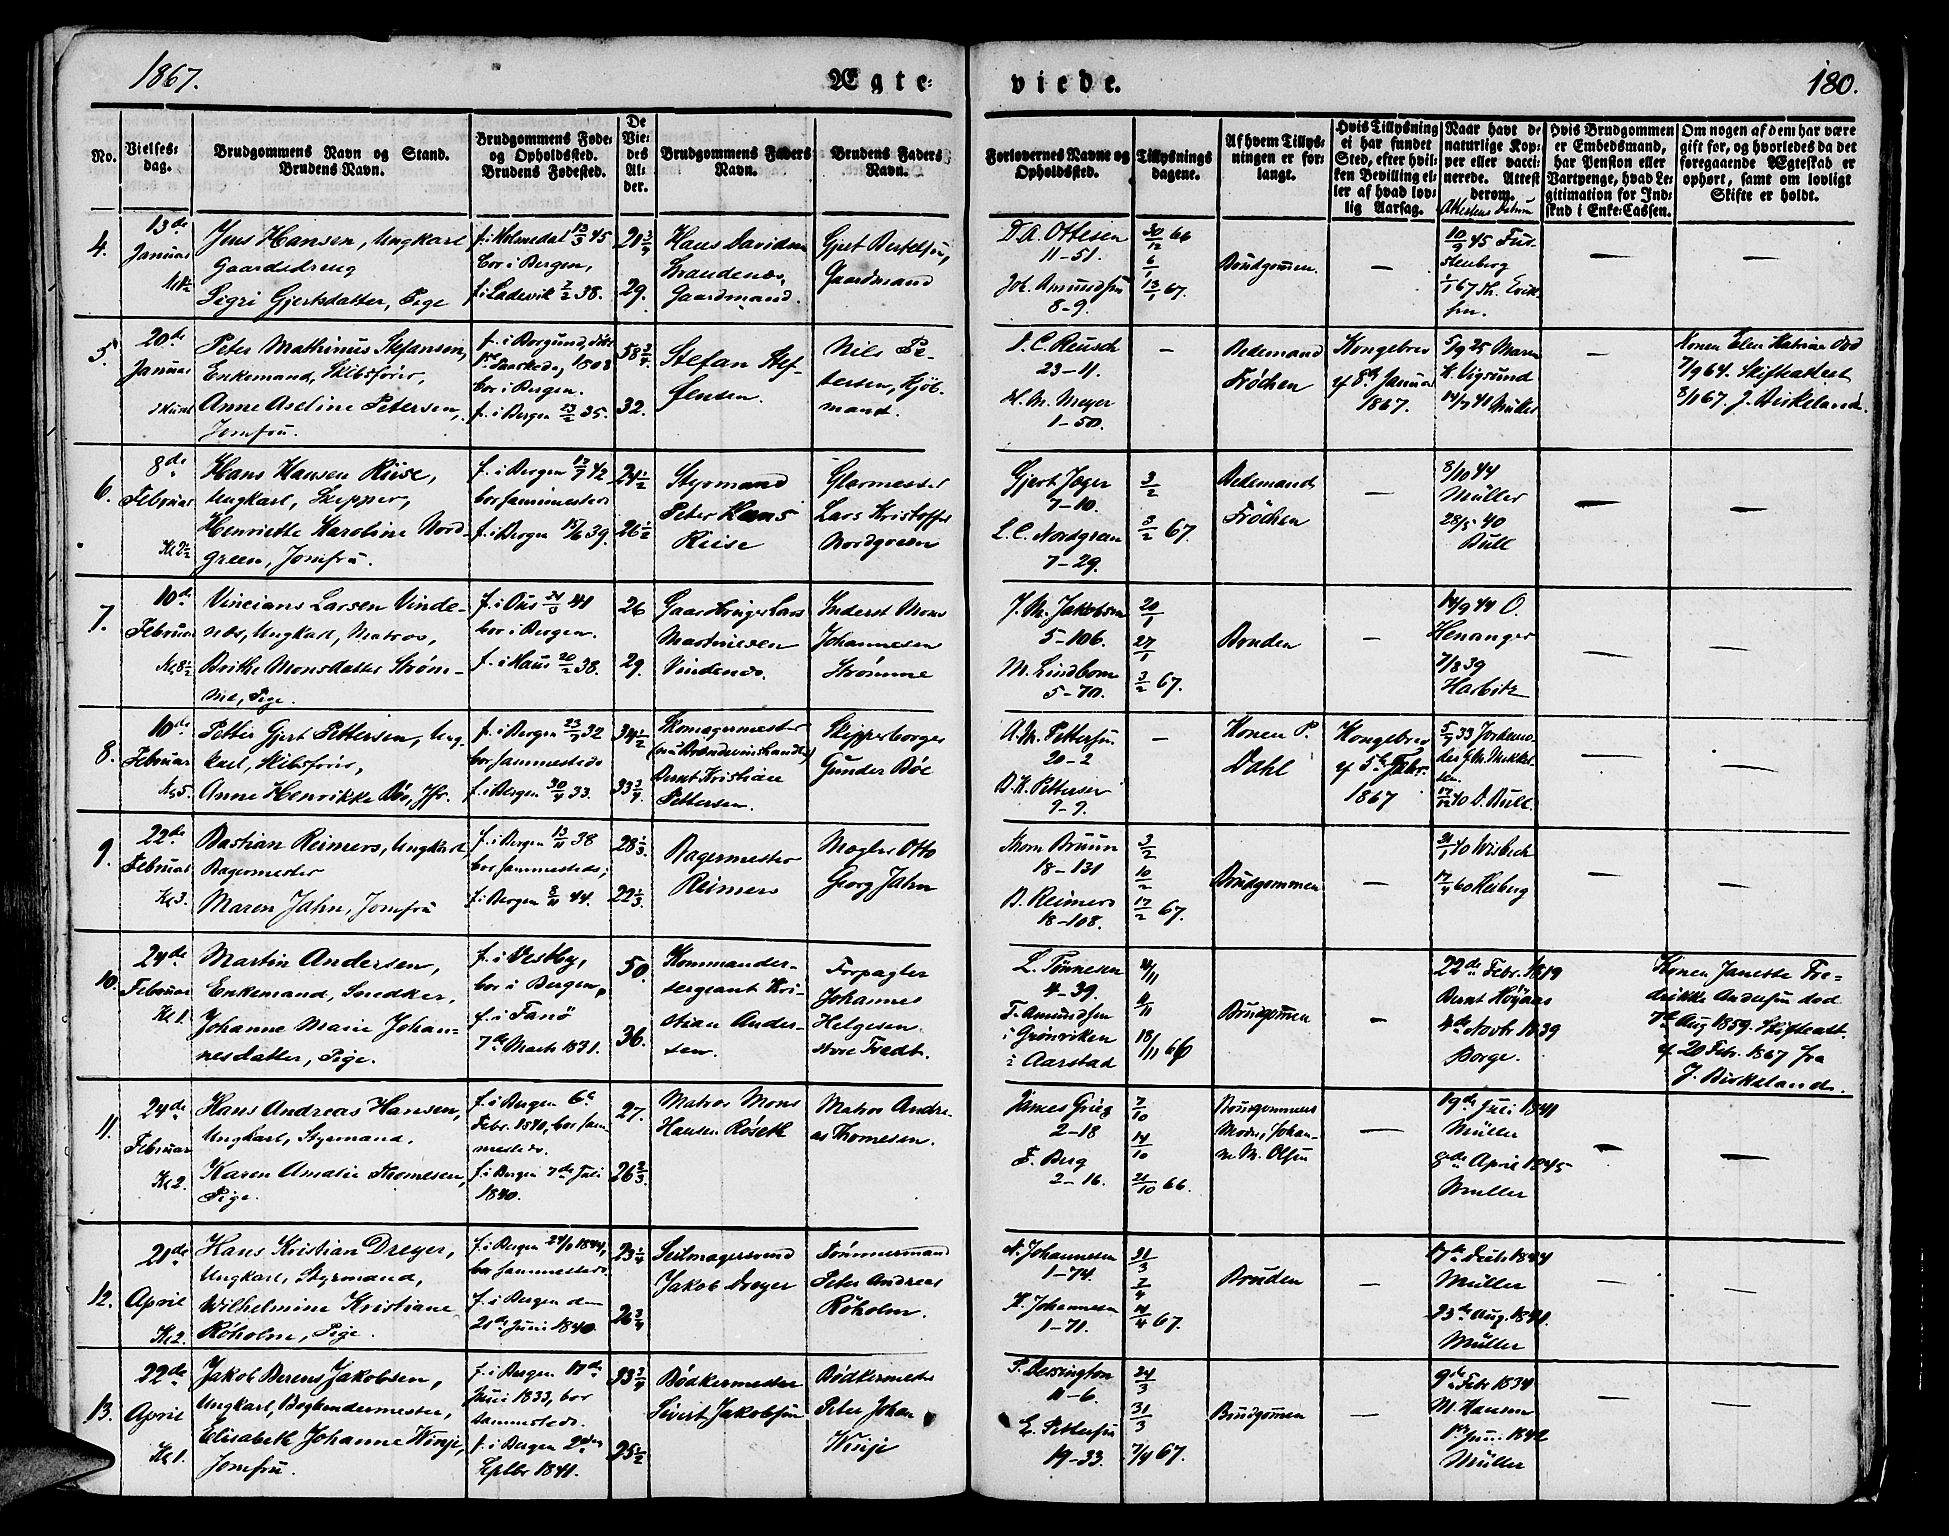 1867.
Ægte=
viede.
180.
No.
Vielses=
dag.
Brudgommens Navn og Stand.
Brudens Navn.
Brudgommens Føde=
og Opholdssted.
Brudens Fødested.
De
Vie=
des
Al=
der.
Brudgommens Faders
Navn.
Brudens Faders
Navn.
Forlovernes Navne og
Opholdssted.
Tillysnings
dagene.
Af hvem Tillys=
ningen er for=
langt.
Hvis Tillysning
ei har fundet
Sted, efter hvil=
ken Bevilling el=
ler af hvad lov=
lig Aarsag.
Naar havt de
naturlige Kop=
per eller vacci=
nerede. Attest
derom.
Hvis Brudgommen
er Embedsmand,
har Pension eller
Vartpenge, hvad Le=
gitimation for Ind=
skud i Enke=Cassen.
Om nogen af dem har være
gift før, og hvorledes da det
foregaaende Ægteskab er
ophørt, samt om lovligt
Skifte er holdt.
4.
13de
Januar
Jens Hansen, Ungkarl
Gaardsdreng
Sigri Gjertsdatter, Pige
f. i Holmedal 13/3 45
bor i Bergen,
f. i Ladevik 2/2 38.
21 3/4
29.
Hans Davidsen
Strandenæs,
Gaardmand.
Gjert Bertelsen,
Gaardmand
D. A. Ottesen
11-51.
Joh. Amundsen
8-9.
30/12 66
6/1
13/1 67.
Brudgommen.
—
10/9 45
—
—
5.
20de
Januar
Peter Mathinus Stefansen,
Enkemand, Skibsfører,
Anne Aseline Petersen,
Jomfru.
f. i Borgund,
1808
bor i Bergen.
f. i Bergen 23/2 35.
58 3/4
32.
Stefan Stef-
fensen.
Nils Pe-
tersen, Kjøb-
mand.
J. C. Reusch
23-11.
H. M. Meyer
1-50.
—
Bedemand
Frøchen
Kongebrev
af 8de Januar
1867.
5/9 25
—
Konen Elen Katrine død
7/9 64. Skifteattest
8/1 67. J. Birkeland.
6.
8de
Februar
Kl 2½
Hans Hansen Riise,
Ungkarl, Skipper,
Henriette Karoline Nord-
green, Jomfru.
f. i Bergen 42
bor sammesteds
f. i Bergen 39.
24 1/2
26 1/2
Styrmand
Peter Hans
Riise
Glarmester
Lars Kristoffer
Nordgreen
Gjert Jæger
7-10.
L. C. Nordgreen
7-29.
3/2
3/2 67.
Bedemand
Frøchen
—
8/10 44
Müller
28/5 40
Bull
—
—
7.
10de
Februar
Kl 8½
Vincians Larsen Vinde-
næs, Ungkarl, Matros,
Brithe Monsdatter Strøm-
me, Pige.
f. i Ous 41
bor i Bergen.
f. i Haus 20/2 38.
26
29.
Gaardbruger Lars
Martinesen
Vindenæs.
Inderst Mons
Johannesen
Strømme
J. M. Jakobsen
5-106.
M. Lindbom
5-70.
20/1
27/1
3/2 67.
Bruden
—
14/9 44 O.
Henanger
7/8 39
Harbitz
—
—
8.
10de
Februar
Kl 5.
Petter Gjert Pettersen, Ung-
karl, Skibsfører,
Anne Henrikke Bøe, Jfr.
f. i Bergen 23/7 32
bor sammesteds
f. i Bergen 30/4 33.
34 1/2
33 3/4
Skomagermester
(nu Brændevinshandler)
Bernt Kristian
Pettersen.
Skipperborger
Gunder Bøe
A. M. Pettersen
20-2
B. K. Pettersen
9-9.
—
Konen P.
Dahl
Kongebrev
af 5te Febr.
1867
17/12 40 O. Bull
—
—
9.
22de
Februar
Kl 3.
Bastian Reimers, Ungkarl,
Bagermester
Maren Jahn, Jomfru
f. i Bergen 13/11 38
bor sammesteds,
f. i Bergen 8/11 44.
28 1/3
22 1/3
Bagermester
Reimers
Mægler Otto
Georg Jahn
Thom Bruun
18-131
B. Reimers
18-108.
3/2
10/2
17/2 67.
Brudgommen
—
21/1 40 Wisbech
17/4 60 Heiberg
—
—
10.
24de
Februar
Kl 1.
Martin Andersen,
Enkemand, Snedker,
Johanne Marie Johan-
nesdatter, Pige.
f. i Vestby,
bor i Bergen,
f. i Fanø
7de Marts 1831.
50.
36.
Kommander-
sergeant Kri-
stian Ander-
sen.
Forpagter
Johannes
Helgesen
store Fredb.
L. Tønnesen
4-39.
F. Amundsen
i Grønviken
i Aarstad
4/11
11/11
18/11 66
Brudgommen
—
22de Febr. 1819
Bernt Høyaas
4de Novbr 1839
Borge.
—
Konen Janette Fre-
drikke Andersen død
7de Aug 1859. Skifteatt.
af 20 Febr. 1867 fra
J. Birkeland.
11.
24de
Februar
Kl 2.
Hans Andreas Hansen,
Ungkarl, Styrmand.
Karen Amalie Thomesen,
Pige.
f. i Bergen 6te
Febr. 1840, bor sam-
mesteds.
f. i Bergen 7de Juli
1840.
27.
26 2/3.
Matros Mons
Hansen Røseth
Matros Andre-
as Thomesen.
James Grieg
2-18
F. Berg
2-16.
7/10
14/10
21/10 66.
Brudgommens
Moder, Johan-
ne M. Olsen
—
19de Juli 1841
Müller
8de April 1845
Müller
—
—
12.
21de
April
Kl 2.
Hans Kristian Dreyer,
Ungkarl, Styrmand,
Wilhelmine Kristiane
Røholm, Pige.
f. i Bergen 1844,
bor sammesteds.
f. i Bergen den
21de Juni 1840.
23 1/4
26 3/4
Seilmagersvend
Jakob Dreyer
Tømmermand
Peter Andreas
Røholm.
N. Johannesen
1-74.
K. Johannesen
1-71.
31/3
7/4
14/4 67.
Bruden
—
17de Decbr. 1844
Müller
23de Aug. 1841.
Müller
—
—
13.
22de
April
Kl 1.
Jakob Berens Jakobsen,
Ungkarl, Bogbindermester,
Elisabeth Johanne Winje,
Jomfru.
f. i Bergen 17de
Juni 1833, bor
sammesteds.
f. i Bergen 2den
Septbr 1841.
33 3/4
25 1/2
Bødkermester
Sivert Jakobsen
Bødkermester
Peter Johan
Winje
T. Dessington
11-6.
E. Pettersen
19-33.
24/3
31/3
7/4 67.
Brudgommen
—
9de Febr 1834
M. Hansen
1ste Juni 1842
Müller
—
—